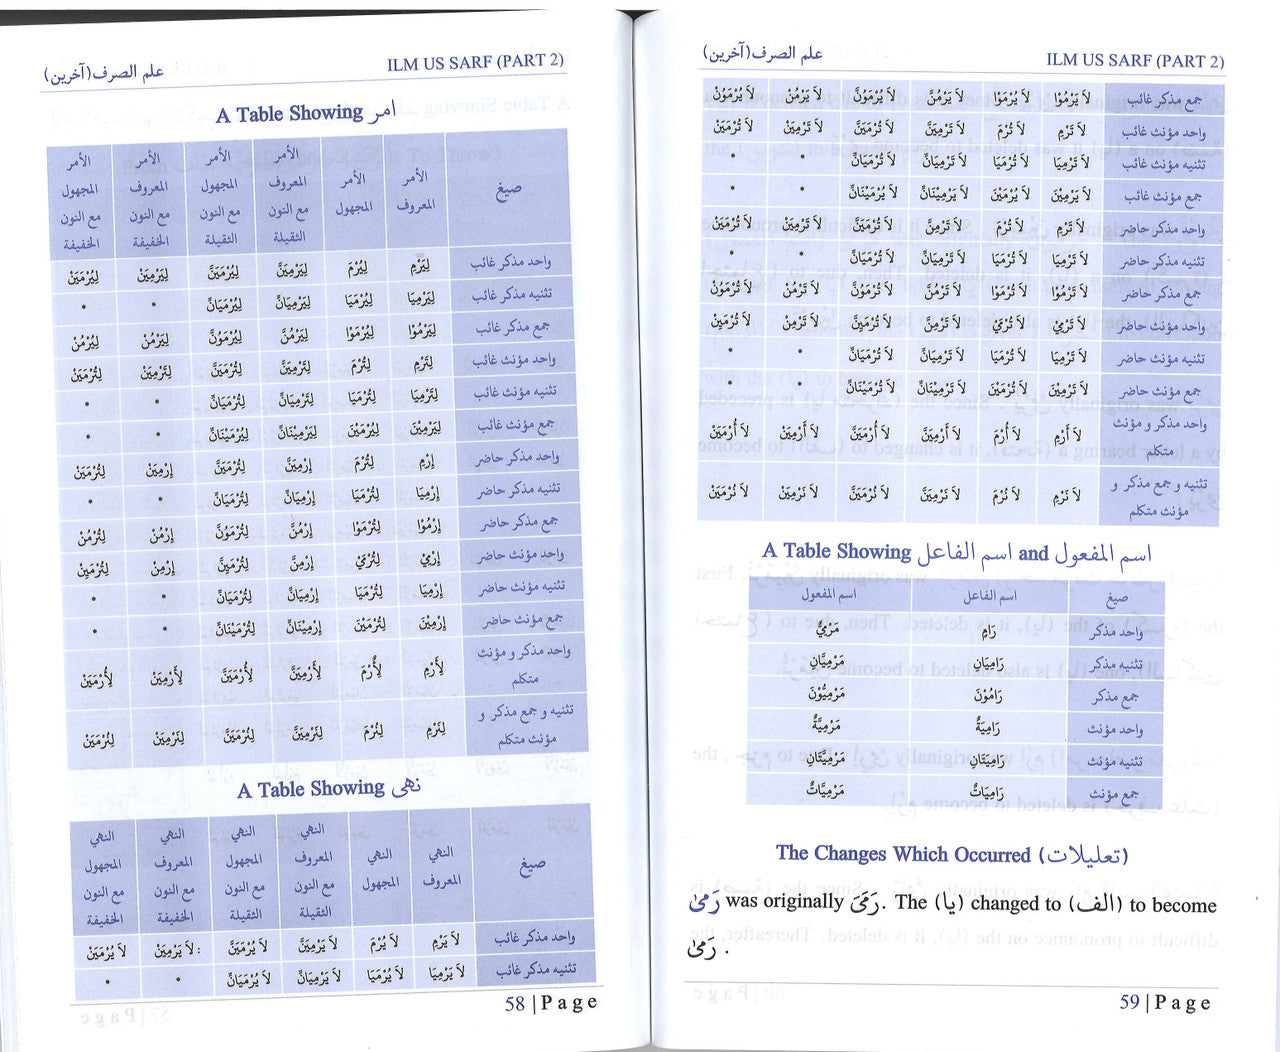 علم الصرف(آخرين) ILM US SARF (PART 2)
A Table Showing امر
صيغ الأمر المعروف الأمر المجهول الأمر المعروف مع النون الثقيلة الأمر المجهول مع النون الثقيلة الأمر المعروف مع النون الخفيفة الأمر المجهول مع النون الخفيفة
واحد مذكر غائب لِيَرْمِ لِيُرْمَ لِيَرْمِيَنَّ لِيُرْمَيَنَّ لِيَرْمِيَنْ لِيُرْمَيَنْ
تثنيه مذكر غائب لِيَرْمِيَا لِيُرْمَيَا لِيَرْمِيَانِّ لِيُرْمَيَانِّ • •
جمع مذكر غائب لِيَرْمُوْا لِيُرْمَوْا لِيَرْمُنَّ لِيُرْمَوُنَّ لِيَرْمُنْ لِيُرْمُنْ
واحد مؤنث غائب لِتَرْمِ لِتُرْمَ لِتَرْمِيَنَّ لِتُرْمَيَنَّ لِتَرْمِيَنْ لِتُرْمَيَنْ
تثنيه مؤنث غائب لِتَرْمِيَا لِتُرْمَيَا لِتَرْمِيَانِّ لِتُرْمَيَانِّ • •
جمع مؤنث غائب لِيَرْمِيْنَ لِيُرْمَيْنَ لِيَرْمِيْنَانِّ لِيُرْمَيْنَانِّ • •
واحد مذكر حاضر اِرْمِ لِتُرْمَ اِرْمِيَنَّ لِتُرْمَيَنَّ اِرْمِيَنْ لِتُرْمَيَنْ
تثنيه مذكر حاضر اِرْمِيَا لِتُرْمَيَا اِرْمِيَانِّ لِتُرْمَيَانِّ • •
جمع مذكر حاضر اِرْمُوْا لِتُرْمَوْا اِرْمُنَّ لِتُرْمَوُنَّ اِرْمُنْ لِتُرْمُنْ
واحد مؤنث حاضر اِرْمِيْ لِتُرْمَيْ اِرْمِنَّ لِتُرْمَيِنَّ اِرْمِنْ لِتُرْمَيِنْ
تثنيه مؤنث حاضر اِرْمِيَا لِتُرْمَيَا اِرْمِيَانِّ لِتُرْمَيَانِّ • •
جمع مؤنث حاضر اِرْمِيْنَ لِتُرْمَيْنَ اِرْمِيْنَانِّ لِتُرْمَيْنَانِّ • •
واحد مذكر و مؤنث متكلم لِأَرْمِ لِأُرْمَ لِأَرْمِيَنَّ لِأُرْمَيَنَّ لِأَرْمِيَنْ لِأُرْمَيَنْ
تثنيه و جمع مذكر و مؤنث متكلم لِنَرْمِ لِنُرْمَ لِنَرْمِيَنَّ لِنُرْمَيَنَّ لِنَرْمِيَنْ لِنُرْمَيَنْ
A Table Showing نهى
صيغ النهي المعروف النهي المجهول النهي المعروف مع النون الثقيلة النهي المجهول مع النون الثقيلة النهي المعروف مع النون الخفيفة النهي المجهول مع النون الخفيفة
واحد مذكر غائب لاَ يَرْمِ لاَ يُرْمَ لاَ يَرْمِيَنَّ لاَ يُرْمَيَنَّ لاَ يَرْمِيَنْ: لاَ يُرْمَيَنْ
تثنيه مذكر غائب لاَ يَرْمِيَا لاَ يُرْمَيَا لاَ يَرْمِيَانِّ لاَ يُرْمَيَانِّ • •
58 | Page
علم الصرف(آخرين) ILM US SARF (PART 2)
جمع مذكر غائب لاَ يَرْمُوْا لاَ يُرْمَوْا لاَ يَرْمُنَّ لاَ يُرْمَوُنَّ لاَ يَرْمُنْ لاَ يُرْمَوُنْ
واحد مؤنث غائب لاَ تَرْمِ لاَ تُرْمَ لاَ تَرْمِيَنَّ لاَ تُرْمَيَنَّ لاَ تَرْمِيَنْ لاَ تُرْمَيَنْ
تثنيه مؤنث غائب لاَ تَرْمِيَا لاَ تُرْمَيَا لاَ تَرْمِيَانِّ لاَ تُرْمَيَانِّ • •
جمع مؤنث غائب لاَ يَرْمِيْنَ لاَ يُرْمَيْنَ لاَ يَرْمِيْنَانِّ لاَ يُرْمَيْنَانِّ • •
واحد مذكر حاضر لاَ تَرْمِ لاَ تُرْمَ لاَ تَرْمِنَّ لاَ تُرْمَيَنَّ لاَ تَرْمِيَنْ لاَ تُرْمَيَنْ
تثنيه مذكر حاضر لاَ تَرْمِيَا لاَ تُرْمَيَا لاَ تَرْمِيَانِّ لاَ تُرْمَيَانِّ • •
جمع مذكر حاضر لاَ تَرْمُوْا لاَ تُرْمَوْا لاَ تَرْمُنَّ لاَ تُرْمَوُنَّ لاَ تَرْمُنْ لاَ تُرْمَوُنْ
واحد مؤنث حاضر لاَ تَرْمِيْ لاَ تُرْمَيْ لاَ تَرْمِنَّ لاَ تُرْمَيِنَّ لاَ تَرْمِنْ لاَ تُرْمَيِنْ
تثنيه مؤنث حاضر لاَ تَرْمِيَا لاَ تُرْمَيَا لاَ تَرْمِيَانِّ لاَ تُرْمَيَانِّ • •
جمع مؤنث حاضر لاَ تَرْمِيْنَ لاَ تُرْمَيْنَ لاَ تَرْمِيْنَانِّ لاَ تُرْمَيْنَانِّ • •
واحد مذكر و مؤنث متكلم لاَ أَرْمِ لاَ أُرْمَ لاَ أَرْمِيَنَّ لاَ أُرْمَيَنَّ لاَ أَرْمِيَنْ لاَ أُرْمَيَنْ
تثنيه و جمع مذكر و مؤنث متكلم لاَ نَرْمِ لاَ نُرْمَ لاَ نَرْمِيَنَّ لاَ نُرْمَيَنَّ لاَ نَرْمِيَنْ لاَ نُرْمَيَنْ
A Table Showing اسم الفاعل and اسم المفعول
صيغ اسم الفاعل اسم المفعول
واحد مذكر رَامٍ مَرْمِيٌّ
تثنيه مذكر رَامِيَانِ مَرْمِيَّانِ
جمع مذكر رَامُوْنَ مَرْمِيُّوْنَ
واحد مؤنث رَامِيَةٌ مَرْمِيَّةٌ
تثنيه مؤنث رَامِيَتَانِ مَرْمِيَّتَانِ
جمع مؤنث رَامِيَاتٌ مَرْمِيَّاتٌ
The Changes Which Occurred (تعليلات)
رَمىٰ was originally رَمَيَ. The (يا) changed to (الف) to become
رَمىٰ .
59 | Page